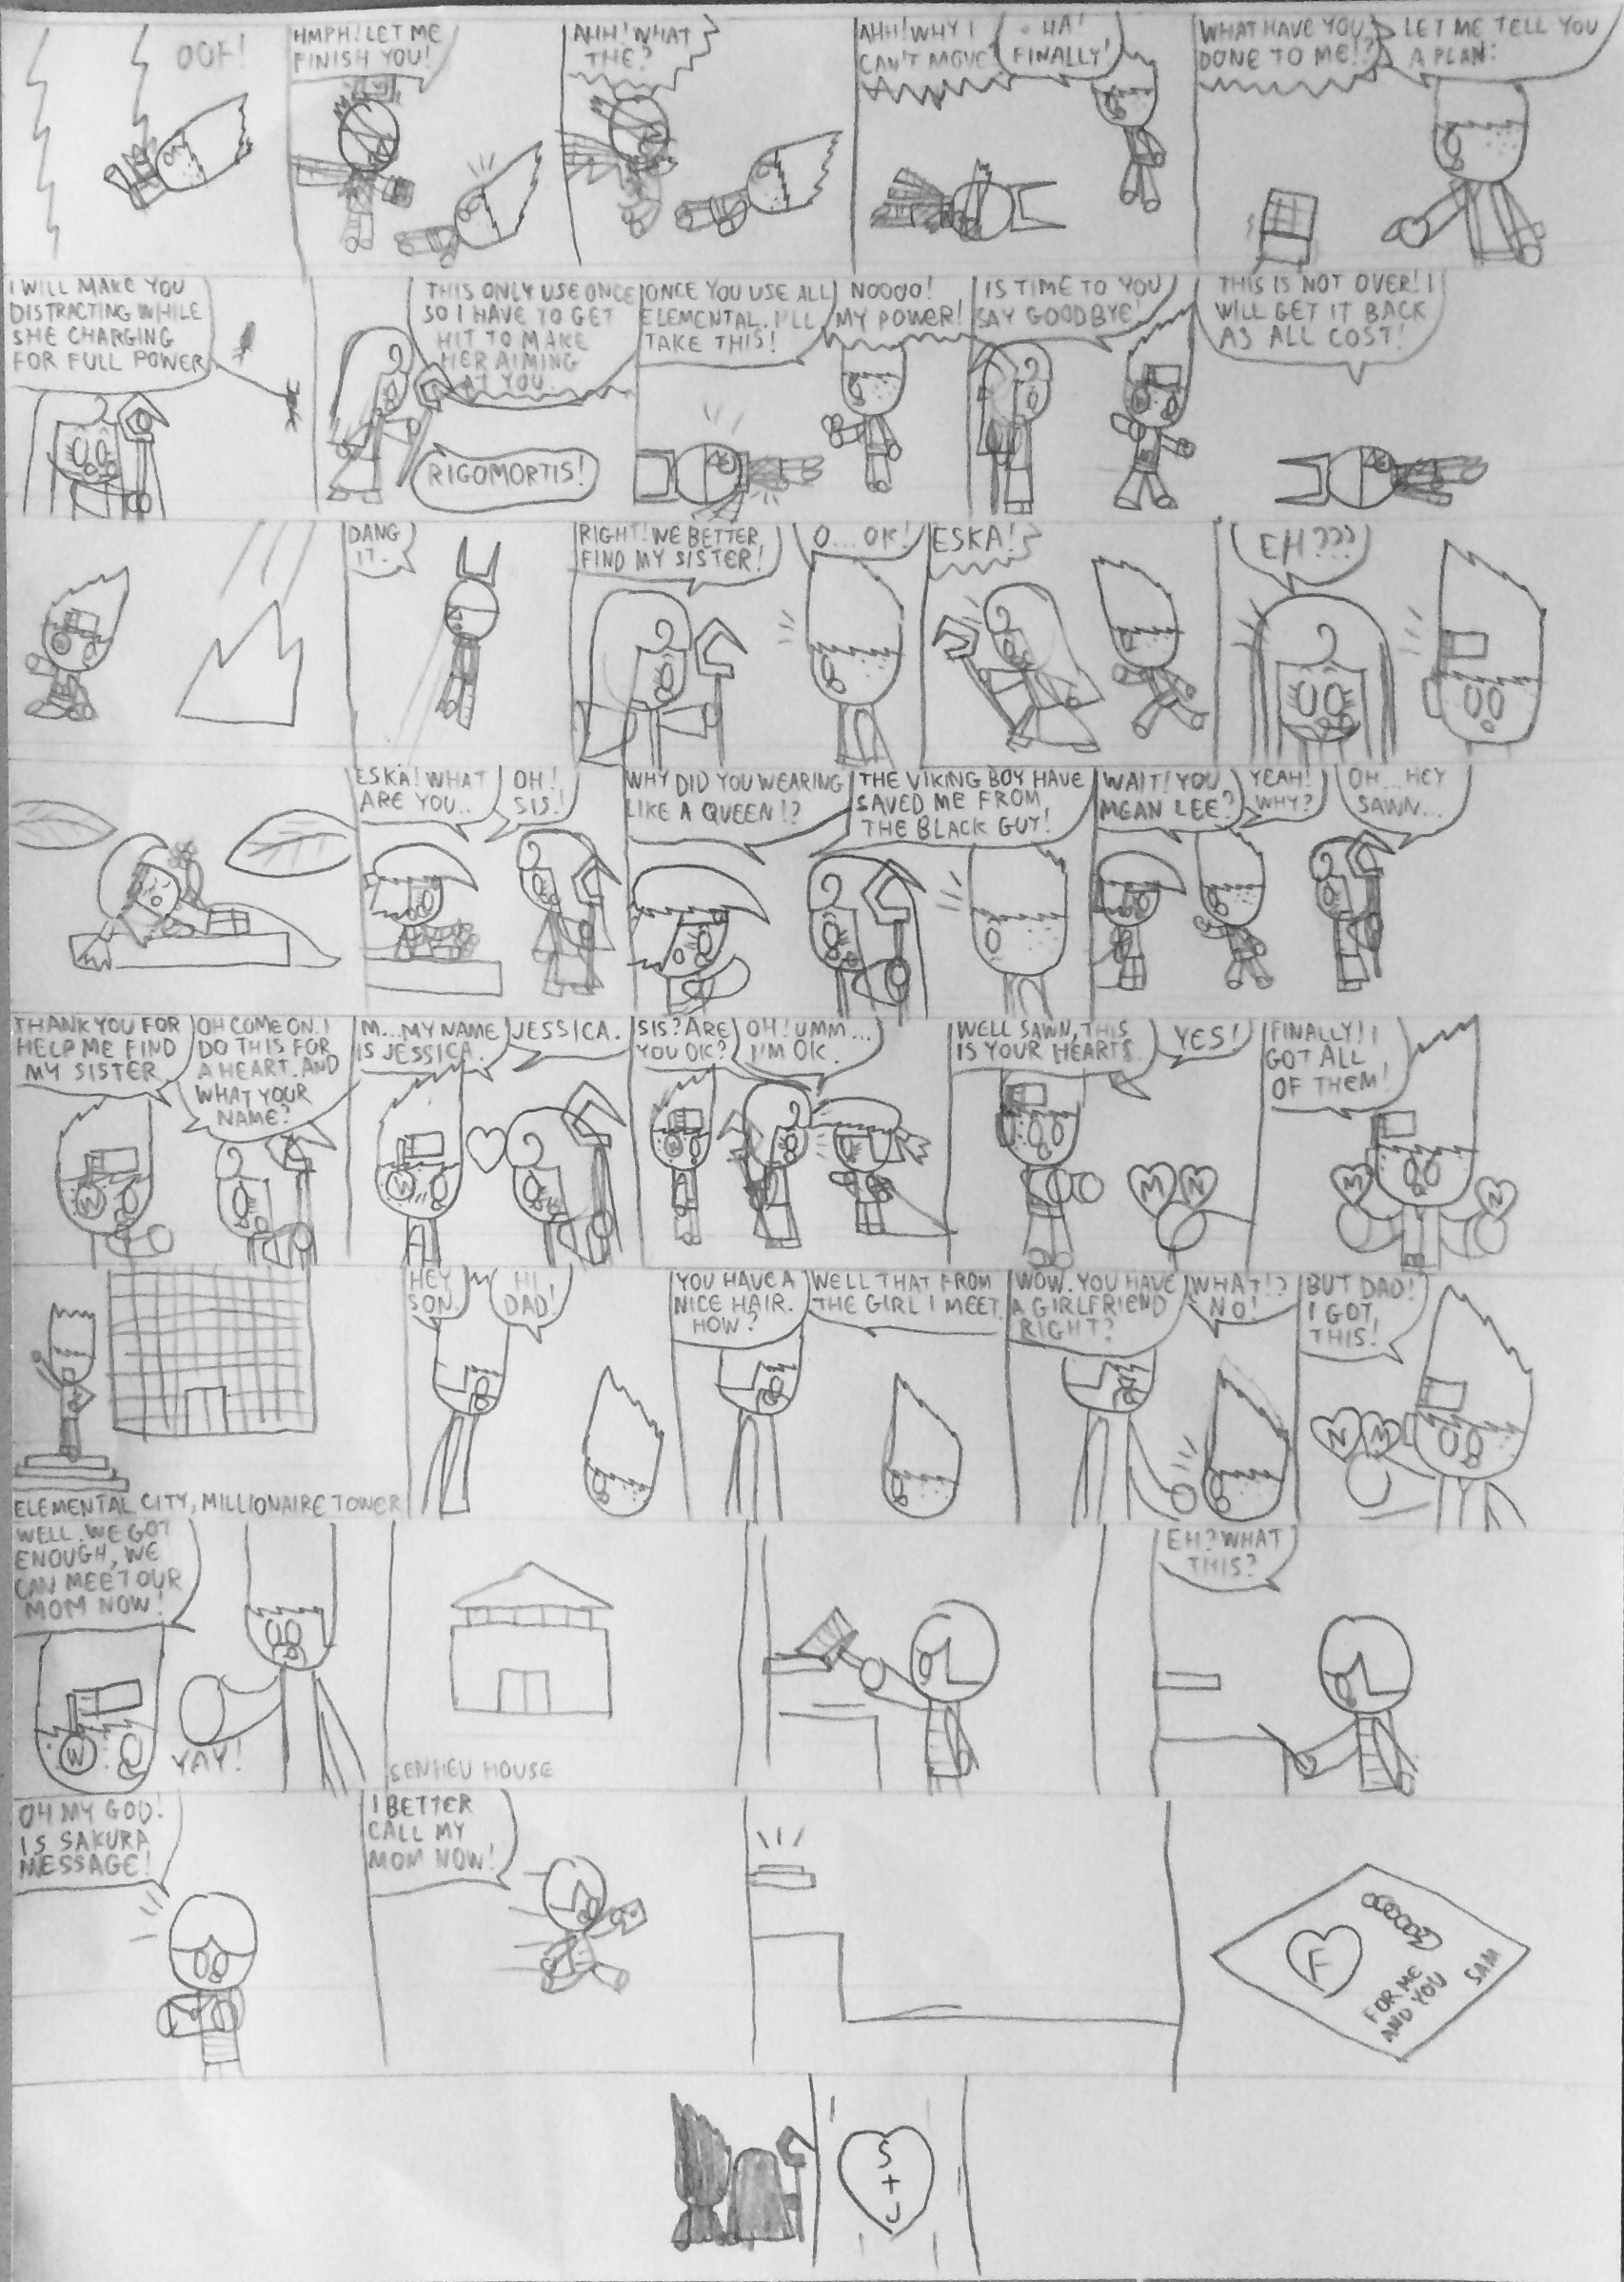 OOF!
HMPH! LET ME
FINISH YOU!
AHH! WHAT
THE?
AHH! WHY I
CAN'T MOVE
HA!
FINALLY!
WHAT HAVE YOU
DONE TO ME!?
LET ME TELL YOU
A PLAN:
I WILL MAKE YOU
DISTRACTING WHILE
SHE CHARGING
FOR FULL POWER
THIS ONLY USE ONCE
SO I HAVE TO GET
HIT TO MAKE
HER AIMING
AT YOU.
RIGOMORTIS!
ONCE YOU USE ALL
ELEMENTAL. I'LL
TAKE THIS!
NOOOO!
MY POWER!
IS TIME TO YOU
SAY GOODBYE!
THIS IS NOT OVER! I
WILL GET IT BACK
AS ALL COST!
DANG
IT.
RIGHT! WE BETTER
FIND MY SISTER!
O...OK!
ESKA!
EH???
ESKA! WHAT
ARE YOU..
OH!
SIS!
WHY DID YOU WEARING
LIKE A QUEEN!?
THE VIKING BOY HAVE
SAVED ME FROM
THE BLACK GUY!
WAIT! YOU
MEAN LEE?
YEAH!
WHY?
OH...HEY
SAWN...
THANK YOU FOR
HELP ME FIND
MY SISTER
OH COME ON. I
DO THIS FOR
A HEART. AND
WHAT YOUR
NAME?
M...MY NAME
IS JESSICA.
JESSICA.
W
SIS? ARE
YOU OK?
OH! UMM...
I'M OK.
WELL SAWN, THIS
IS YOUR HEARTS.
YES!
M N
FINALLY! I
GOT ALL
OF THEM!
M N
ELEMENTAL CITY, MILLIONAIRE TOWER
HEY
SON.
HI
DAD!
YOU HAVE A
NICE HAIR.
HOW?
WELL THAT FROM
THE GIRL I MEET.
WOW. YOU HAVE
A GIRLFRIEND
RIGHT?
WHAT!?
NO!
BUT DAD!
I GOT
THIS!
N M
WELL. WE GOT
ENOUGH, WE
CAN MEET OUR
MOM NOW!
W
YAY!
SENHEU HOUSE
EH? WHAT
THIS?
OH MY GOD!
IS SAKURA
MESSAGE!
I BETTER
CALL MY
MOM NOW!
F
FOR ME
AND YOU
SAM
S
+
J